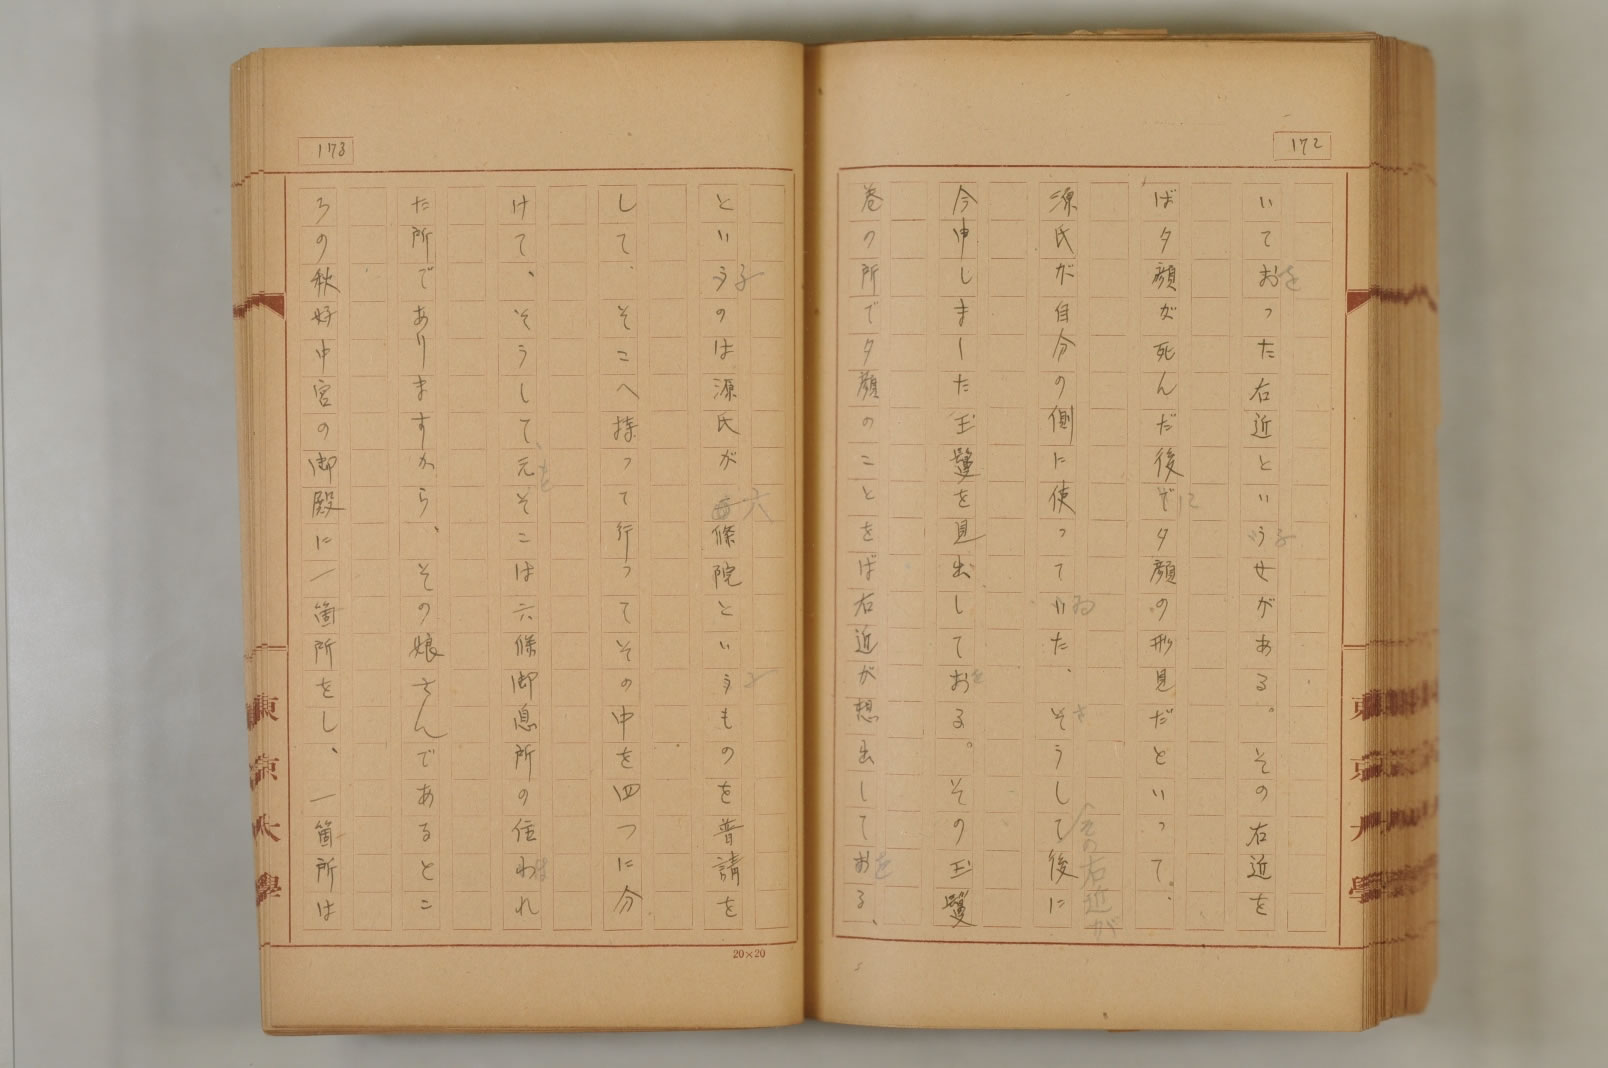 172
いておった右近といううせがある。その右近を
をふ
ば夕顔が死んだ後で夕顔の形見だといって、
に
源氏が自分の側に使っていた、そうして後に
ゐさその右近が
今申しました玉鬘を見出しておる。その玉鬘
を
巻の所で夕顔のことをば右近が想出しておる、
を
173
というのは源氏が條院というものを普請を
ふ六ふ
して、そこへ持って行ってその中を四つに分
けて、そうして、元そこは六條御息所の住われ
もとは
た所でありますから、その娘さんであるとこ
ろの秋好中宮の御殿に一箇所をし、一箇所は
20×20
東京大學
東京大學